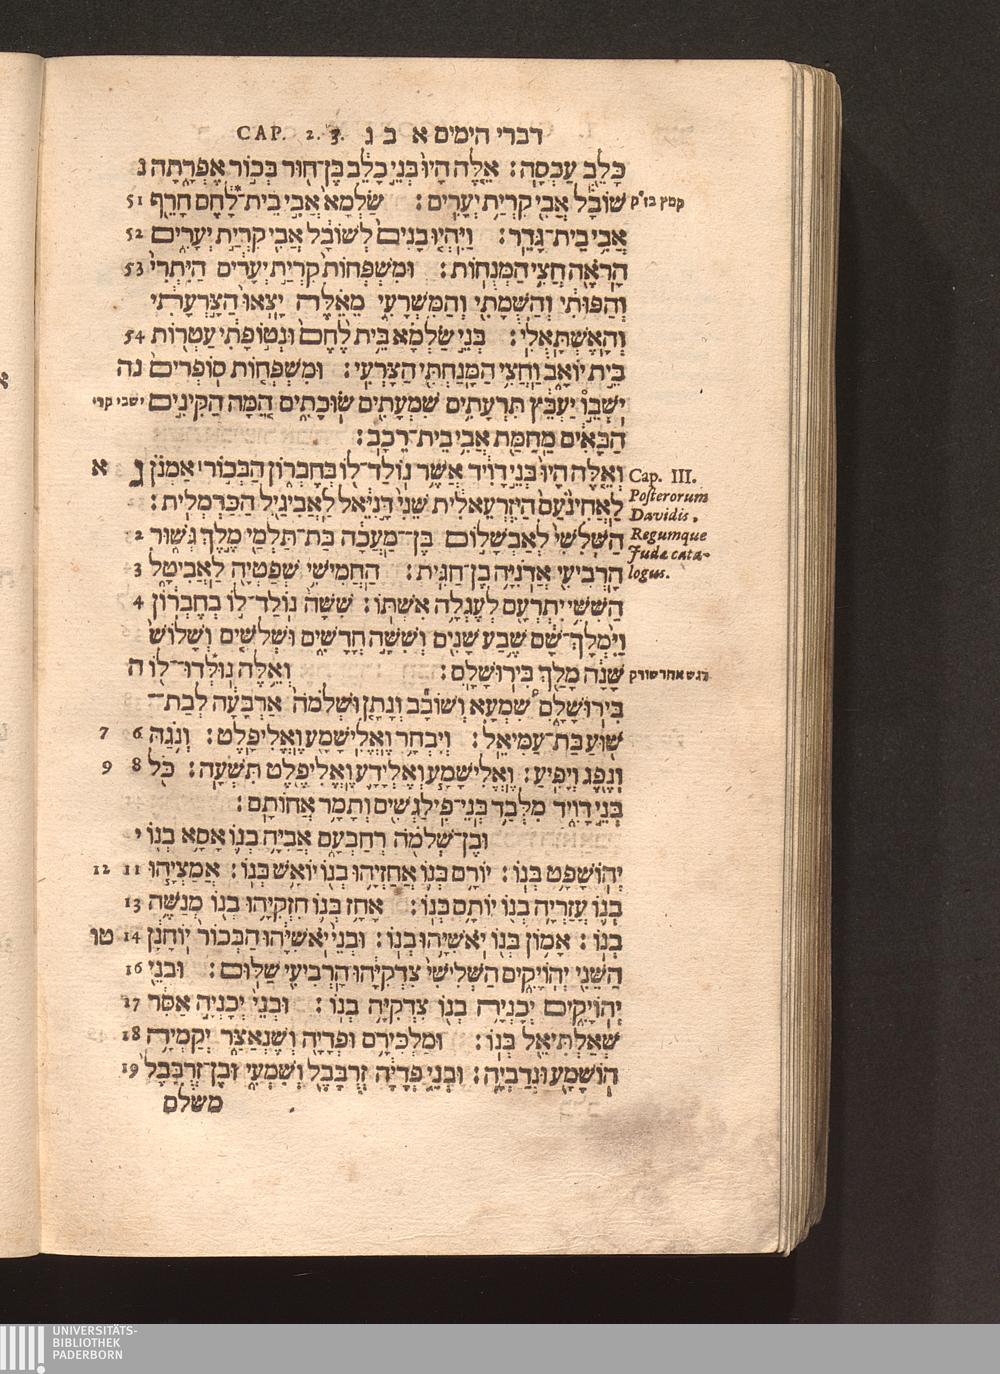 דברי הימים א ב ג CAP. 2. 3.
כָּלֵ֖ב עַכְסָֽה׃ אֵ֤לֶּה הָיוּ֙ בְּנֵ֣י כָלֵ֔ב בֶּן־ח֖וּר בְּכ֣וֹר אֶפְרָ֑תָה נ
קמץ בז״ק שׁוֹבָ֕ל אֲבִ֖י קִרְיַ֥ת יְעָרִֽים׃ שַׂלְמָא֙ אֲבִ֣י בֵֽית־לָ֔חֶם חָרֵ֖ף 51
אֲבִ֥י בֵית־גָּדֵֽר׃ וַיִּהְי֤וּ בָנִים֙ לְשׁוֹבָ֔ל אֲבִ֖י קִרְיַ֣ת יְעָרִ֑ים 52
הָרֹאֶ֖ה חֲצִ֥י הַמְּנֻחֽוֹת׃ וּמִשְׁפְּחוֹת֙ קִרְיַ֣ת יְעָרִ֔ים הַיִּתְרִי֙ 53
וְהַפּוּתִ֔י וְהַשֻּׁמָתִ֖י וְהַמִּשְׁרָעִ֑י מֵאֵ֗לֶּה יָֽצְאוּ֙ הַצָּ֣רְעָתִ֔י
וְהָאֶשְׁתָּאֻלִֽי׃ בְּנֵ֣י שַׂלְמָ֗א בֵּ֥ית לֶ֙חֶם֙ וּנְט֣וֹפָתִ֔י עַטְר֖וֹת 54
בֵּ֣ית יוֹאָ֑ב וַחֲצִ֥י הַמָּנַחְתִּ֖י הַצָּרְעִֽי׃ וּמִשְׁפְּח֤וֹת סֽוֹפְרִים֙ נה
יֹשְׁבֵ֣ו יַעְבֵּ֔ץ תִּרְעָתִ֥ים שִׁמְעָתִ֖ים שׂוּכָתִ֑ים הֵ֚מָּה הַקִּינִ֣ים ישבי קרי
הַבָּאִ֔ים מֵחַמַּ֖ת אֲבִ֥י בֵית־רֵכָֽב׃
Cap. III. וְאֵ֤לֶּה הָיוּ֙ בְּנֵ֣י דָוִ֔יד אֲשֶׁ֥ר נֽוֹלַד־ל֖וֹ בְּחֶבְר֑וֹן הַבְּכ֣וֹר׀ אַמְנֹ֗ן ג א
Posterorum לַאֲחִינֹ֙עַם֙ הַיִּזְרְעֵאלִ֔ית שֵׁנִי֙ דָּנִיֵּ֔אל לַאֲבִיגַ֖יִל הַֽכַּרְמְלִֽית׃
Davidis,
Regumque הַשְּׁלִשִׁי֙ לְאַבְשָׁל֣וֹם בֶּֽן־מַעֲכָ֔ה בַּת־תַּלְמַ֖י מֶ֣לֶךְ גְּשׁ֑וּר 2
Judæ cata-
logus. הָרְבִיעִ֖י אֲדֹנִיָּ֥ה בֶן־חַגִּֽית׃ הַחֲמִישִׁ֥י שְׁפַטְיָ֖ה לַאֲבִיטָ֑ל 3
הַשִּׁשִּׁ֥י יִתְרְעָ֖ם לְעֶגְלָ֥ה אִשְׁתּֽוֹ׃ שִׁשָּׁה֙ נֽוֹלַד־ל֣וֹ בְחֶבְר֔וֹן 4
וַיִּ֨מְלָךְ־שָׁ֔ם שֶׁ֥בַע שָׁנִ֖ים וְשִׁשָּׁ֣ה חֳדָשִׁ֑ים וּשְׁלֹשִׁ֤ים וְשָׁלוֹשׁ֙
דגש אחר שורק שָׁנָ֔ה מָלַ֖ךְ בִּירֽוּשָׁלָֽ͏ִם׃ וְאֵ֥לֶּה נוּלְּדוּ־ל֖וֹ ה
בִּירֽוּשָׁלָ֑יִם שִׁ֠מְעָא וְשׁוֹבָ֞ב וְנָתָ֤ן וּשְׁלֹמֹה֙ אַרְבָּעָ֔ה לְבַת־
שׁ֖וּעַ בַּת־עַמִּיאֵֽל׃ וְיִבְחָ֥ר וֶאֱלִישָׁמָ֖ע וֶאֱלִיפָֽלֶט׃ וְנֹ֥גַהּ 6 7
וְנֶ֖פֶג וְיָפִֽיעַ׃ וֶאֱלִישָׁמָ֧ע וְאֶלְיָדָ֛ע וֶאֱלִיפֶ֖לֶט תִּשְׁעָֽה׃ כֹּ֖ל 8 9
בְּנֵ֣י דָוִ֑יד מִלְּבַ֥ד בְּֽנֵי־פִֽילַגְשִׁ֖ים וְתָמָ֥ר אֲחוֹתָֽם׃
וּבֶן־שְׁלֹמֹ֖ה רְחַבְעָ֑ם אֲבִיָּ֥ה בְנ֛וֹ אָסָ֥א בְנ֖וֹ י
יְהוֹשָׁפָ֥ט בְּנֽוֹ׃ יוֹרָ֥ם בְּנ֛וֹ אֲחַזְיָ֥הוּ בְנ֖וֹ יוֹאָ֥שׁ בְּנֽוֹ׃ אֲמַצְיָ֥הוּ 11 12
בְנ֛וֹ עֲזַרְיָ֥ה בְנ֖וֹ יוֹתָ֥ם בְּנֽוֹ׃ אָחָ֥ז בְּנ֛וֹ חִזְקִיָּ֥הוּ בְנ֖וֹ מְנַשֶּׁ֥ה 13
בְנֽוֹ׃ אָמ֥וֹן בְּנ֖וֹ יֹאשִׁיָּ֥הוּ בְנֽוֹ׃ וּבְנֵי֙ יֹֽאשִׁיָּ֔הוּ הַבְּכוֹר֙ יֽוֹחָנָ֔ן 14 טו
הַשֵּׁנִ֖י יְהוֹיָקִ֑ים הַשְּׁלִשִׁי֙ צִדְקִיָּ֔הוּ הָרְבִיעִ֖י שַׁלּֽוּם׃ וּבְנֵ֖י 16
יְהוֹיָקִ֑ים יְכָנְיָ֥ה בְנ֖וֹ צִדְקִיָּ֥ה בְנֽוֹ׃ וּבְנֵי֙ יְכָנְיָ֣ה אַסִּ֔ר 17
שְׁאַלְתִּיאֵ֖ל בְּנֽוֹ׃ וּמַלְכִּירָ֥ם וּפְדָיָ֖ה וְשֶׁנְאַצַּ֑ר יְקַמְיָ֥ה 18
הוֹשָׁמָ֖ע וּנְדַבְיָֽה׃ וּבְנֵ֣י פְדָיָ֔ה זְרֻבָּבֶ֖ל וְשִׁמְעִ֑י וּבֶן־זְרֻבָּבֶל֙ 19
משלם
UNIVERSITÄTS-
BIBLIOTHEK
PADERBORN